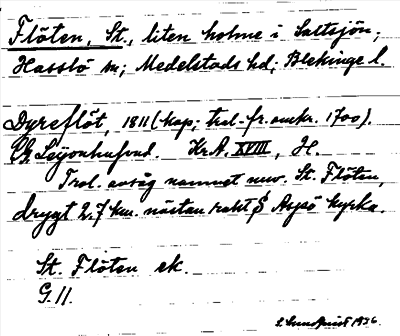 Flöten, St., liten holme i Saltsjön;
Hasslö sn; Medelstads hd; Blekinge l.
Dyreflöt, 1811 (kap; trol. fr. omkr. 1700).
Leijonhufvud. Kr.A. XVIII, H.
Trol. avsåg namnet nuv. St. Flöten,
drygt 2,7 km. nästan rakt S Aspö kyrka.
St. Flöten ek.
G. 11.
1936.